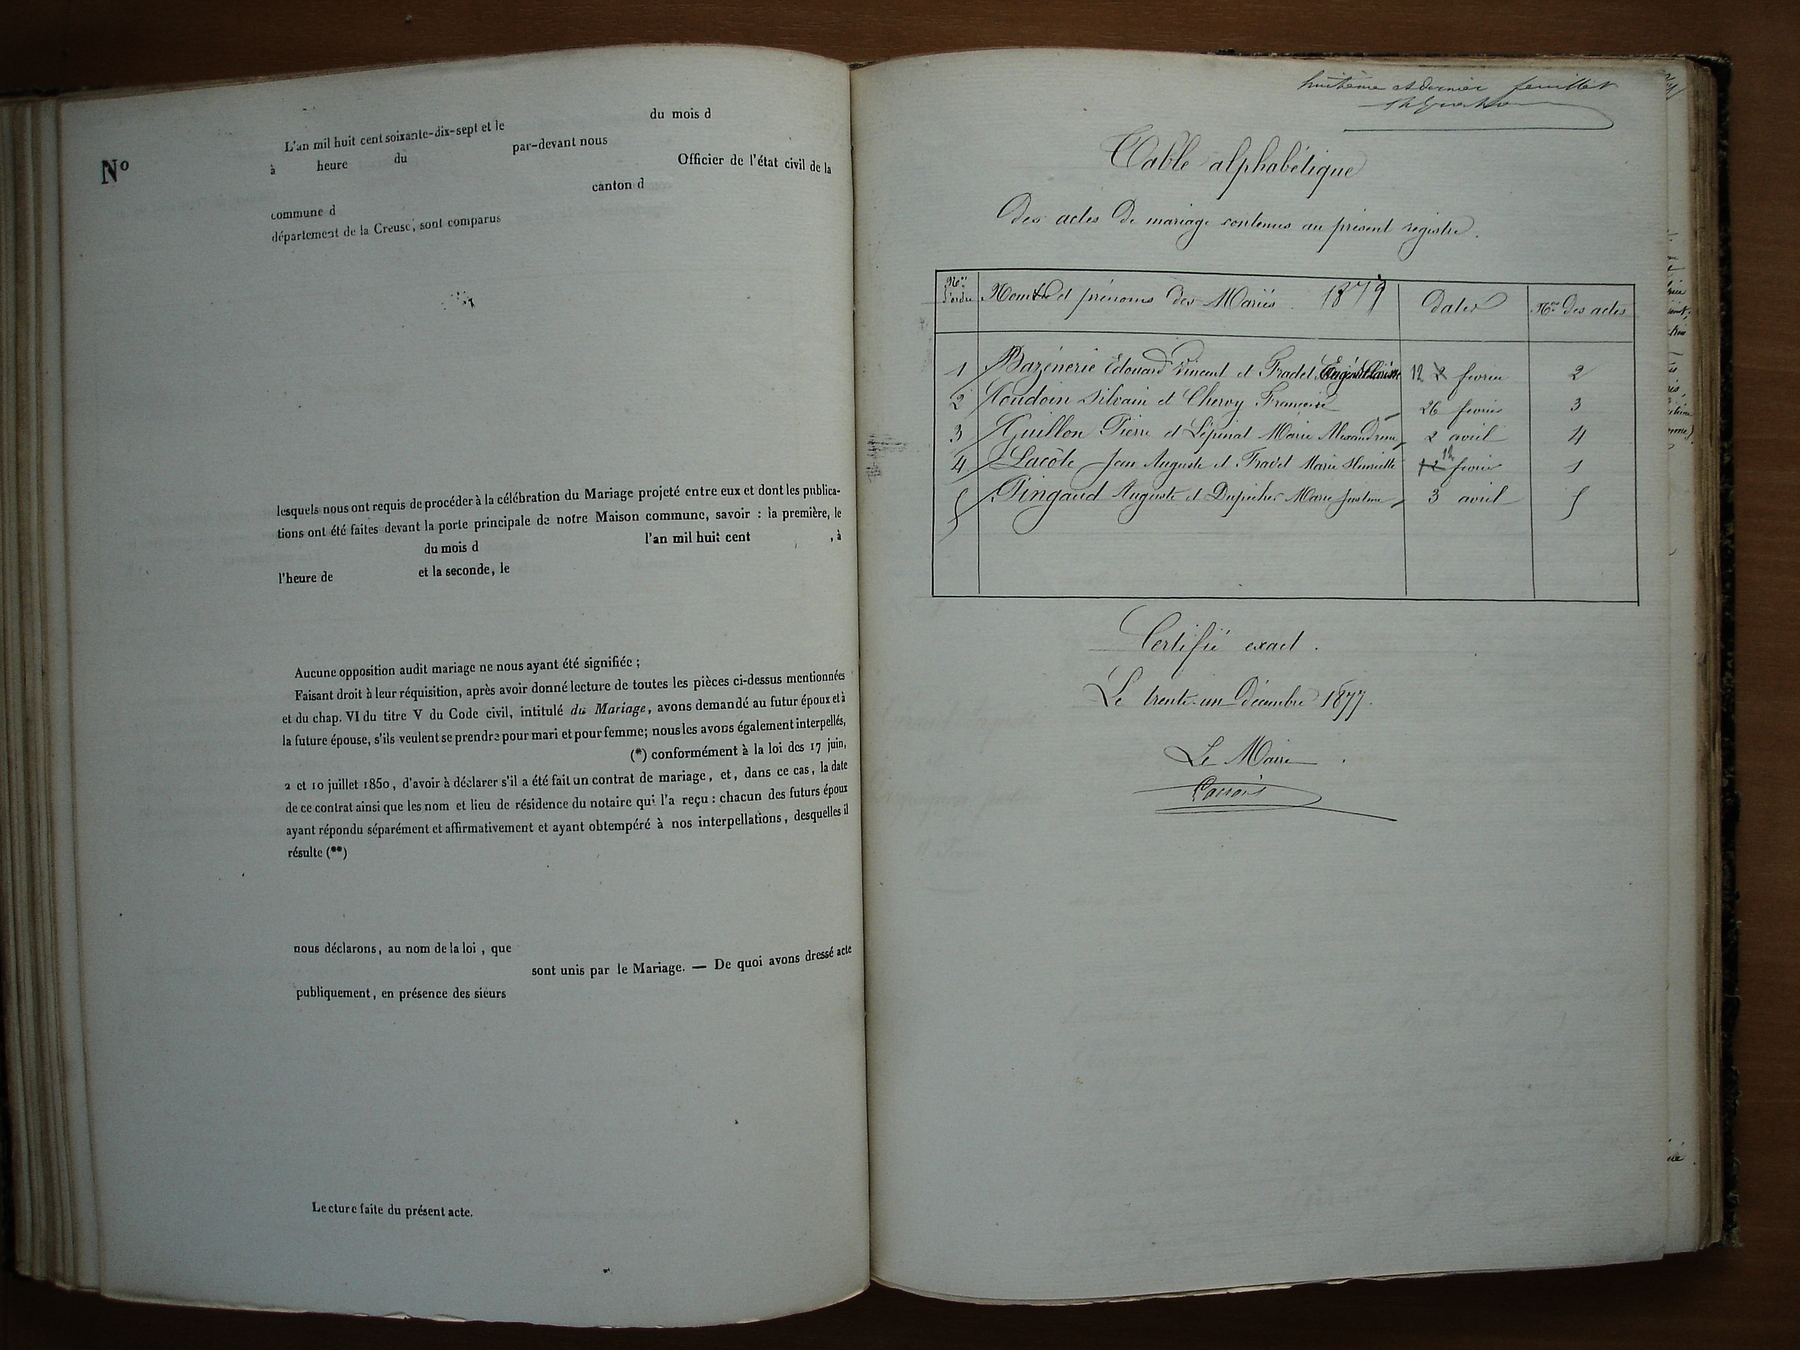 Nº
L'an mil huit cent soixante-dix-sept et le du mois d
à heure du par-devant nous
Officier de l'état civil de la
commune d canton d
département de la Creuse, sont comparus
lesquels nous ont requis de procéder à la célébration du Mariage projeté entre eux et dont les publica-
tions ont été faites devant la porte principale de notre Maison commune, savoir : la première, le
du mois d l'an mil huit cent , à
l'heure de et la seconde, le
Aucune opposition audit mariage ne nous ayant été signifiée ;
Faisant droit à leur réquisition, après avoir donné lecture de toutes les pièces ci-dessus mentionnées
et du chap. VI du titre V du Code civil, intitulé du Mariage, avons demandé au futur époux et à
la future épouse, s'ils veulent se prendre pour mari et pour femme; nous les avons également interpellés,
(*) conformément à la loi des 17 juin,
2 et 10 juillet 1850, d'avoir à déclarer s'il a été fait un contrat de mariage, et, dans ce cas, la date
de ce contrat ainsi que les nom et lieu de résidence du notaire qui l'a reçu : chacun des futurs époux
ayant répondu séparément et affirmativement et ayant obtempéré à nos interpellations, desquelles il
résulte (**)
nous déclarons, au nom de la loi, que
sont unis par le Mariage. — De quoi avons dressé acte
publiquement, en présence des sieurs
Lecture faite du présent acte.
huitième et dernier feuillet
Table alphabétique
Des actes de mariage contenus au présent registre.
Nos d'ordre Noms et prénoms des Mariés 1877 dates Nos des actes
1 Bazénerie Edouard Vincent et Fradet Eugénie Clarisse 12 fevrier 2
2 Coudoin Silvain et Chervy Françoise 26 fevrier 3
3 Guillon Pierre et Lépinat Marie Alexandrine 2 avril 4
4 Lacôte Jean Auguste et Fradet Marie Henriette 12 fevrier 1
5 Pingaud Auguste et Dupicher Marie Justine 3 avril 5
Certifié exact.
Le trente-un Décembre 1877.
Le Maire